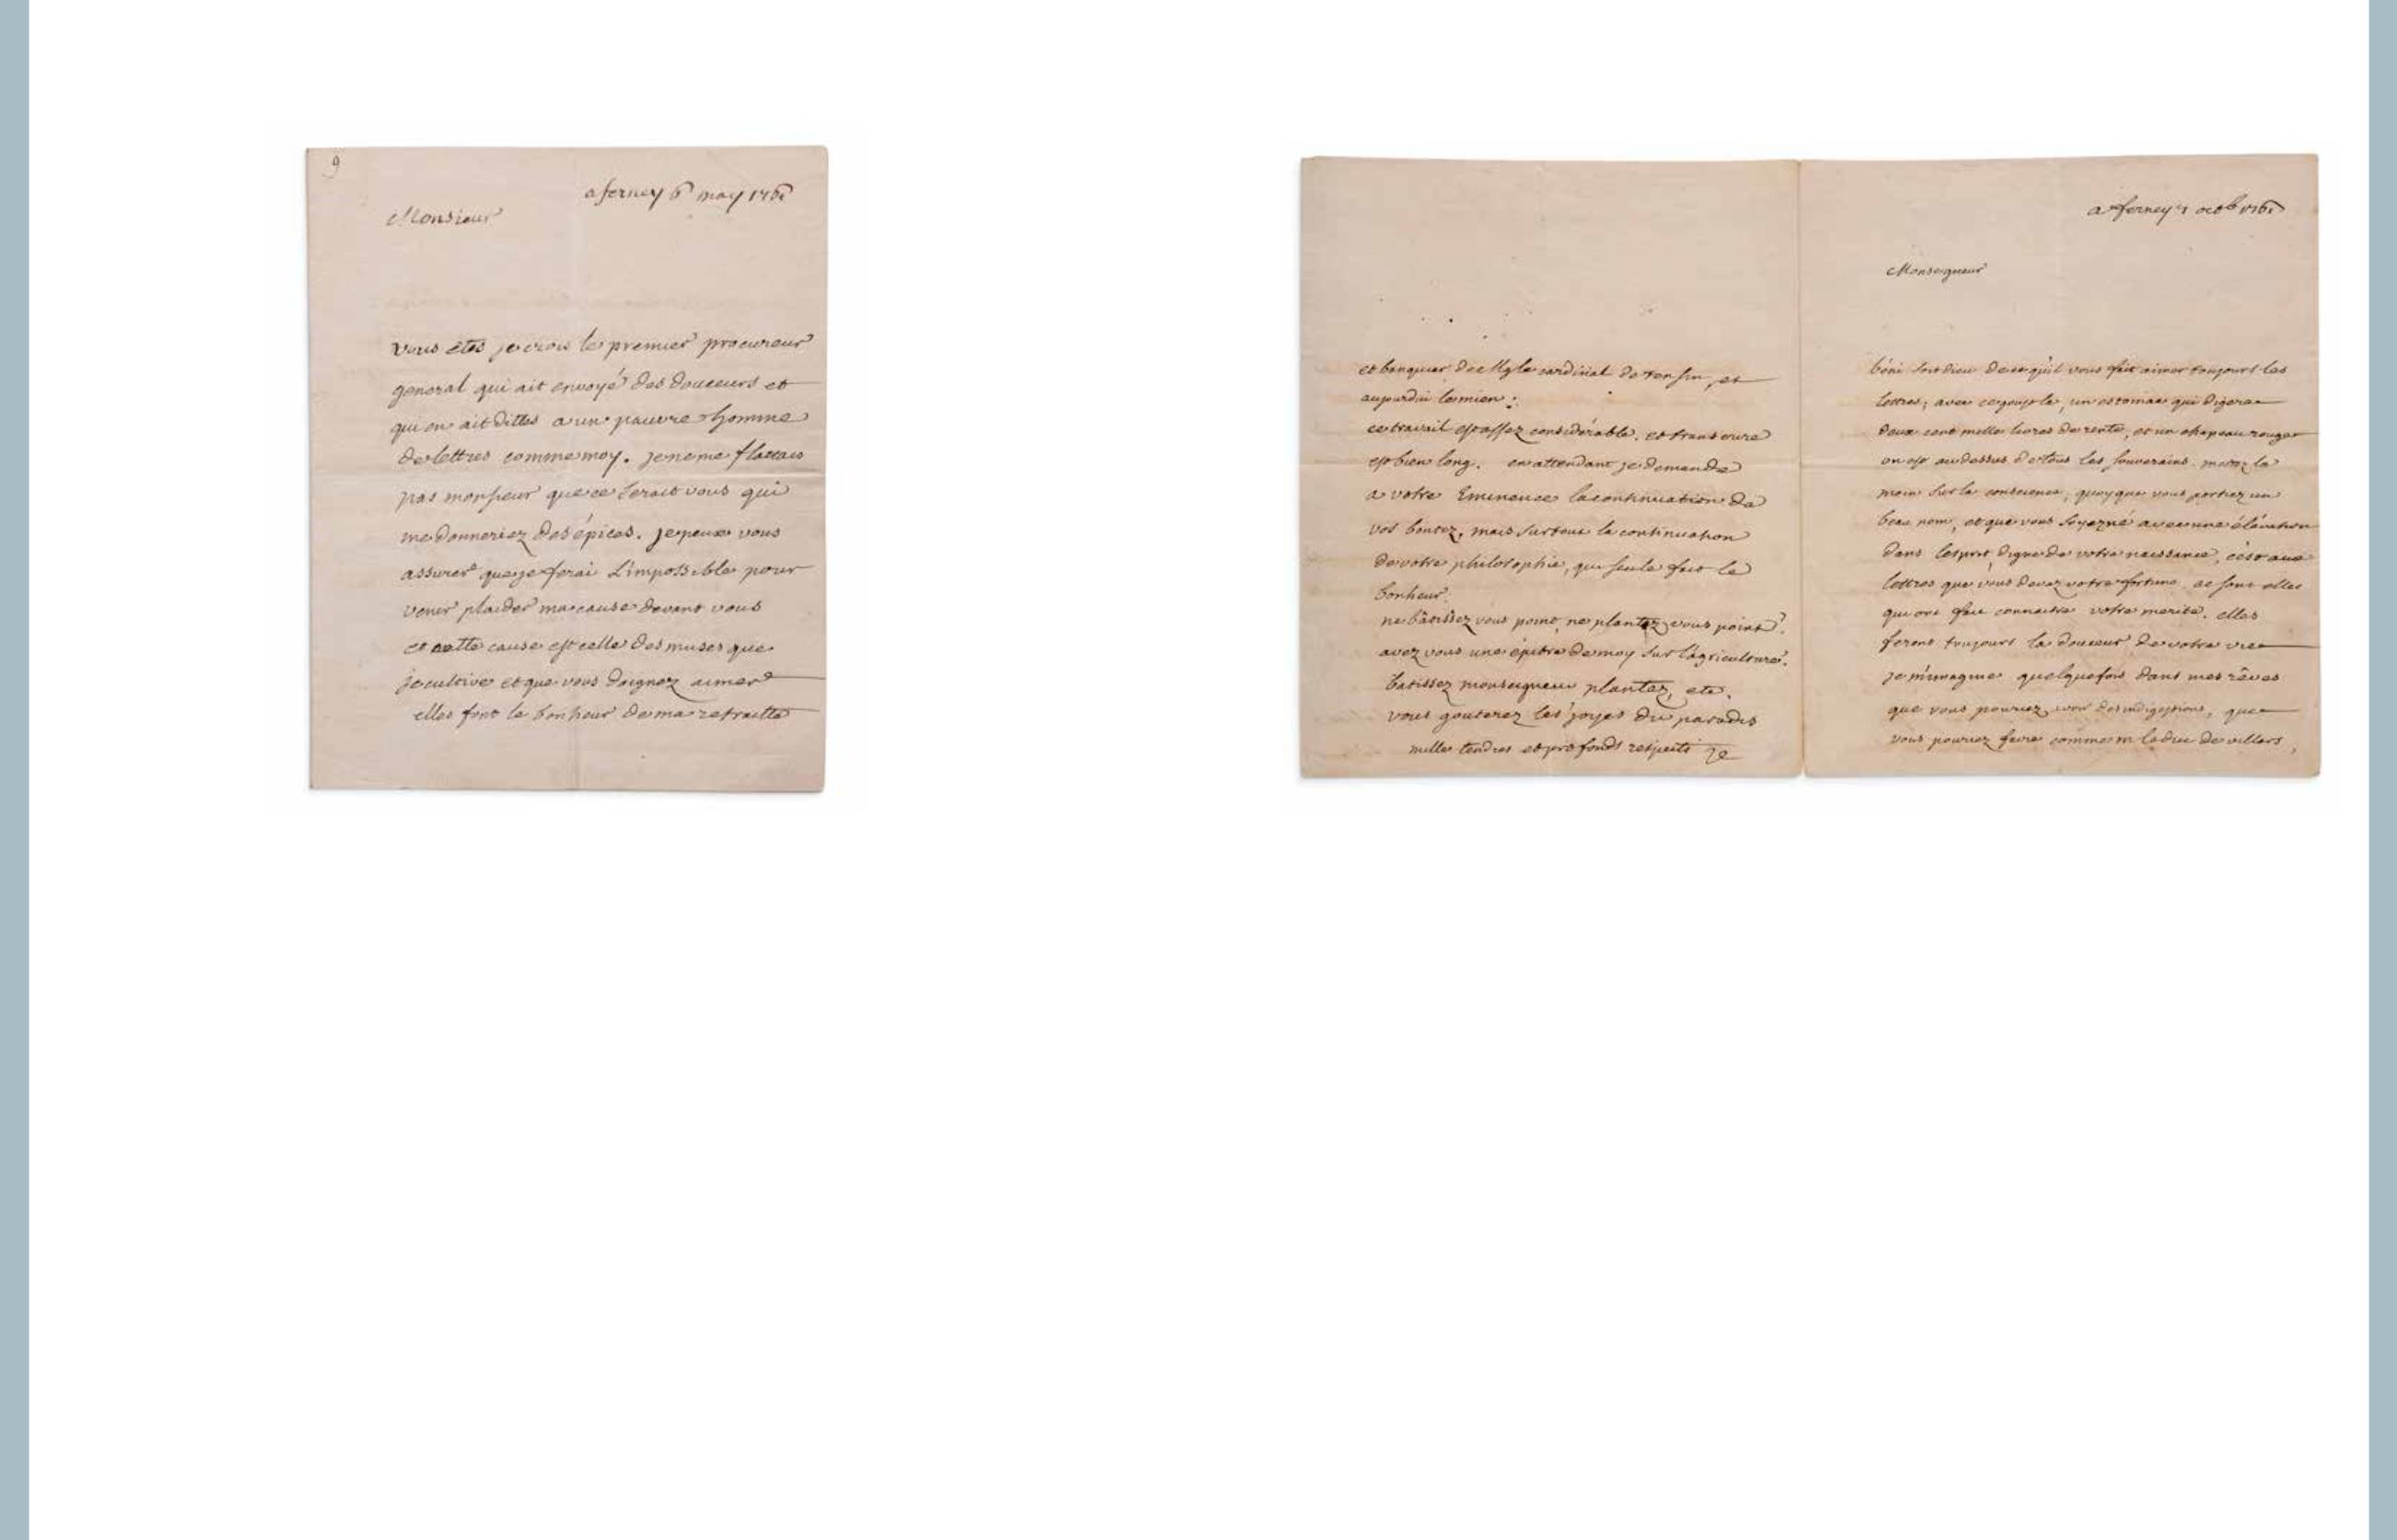 9
a ferney 6 may 1761
Monsieur
vous êtes je crois le premier procureur
general qui ait envoyé des douceurs et
qui en ait dittes a un pauvre homme
de lettres comme moy. je ne me flattais
pas monsieur que ce serait vous qui
me donneriez des épices. je peux vous
assurer que je ferai L'impossible pour
venir plaider ma cause devant vous
et cette cause est celle des muses que
je cultive et que vous daignez aimer
elles font le bonheur de ma retraitte
et banquier de Mgr le cardinal de tensin, et
aujourdui le mien.
ce travail est assez considérable. et transcrire
est bien long. en attendant je demande
a votre Eminence la continuation de
vos bontez, mais surtout la continuation
de votre philosophie, qui seule fait le
bonheur.
ne bâtissez vous point, ne plantez vous point?
avez vous une épitre de moy sur l'agriculture?
batissez monseigneur plantez, etc.
vous gouterez les joyes du paradis
mille tendres et profonds respects
a ferney octb 1761
Monseigneur
béni soit dieu de ce qu'il vous fait aimer toujours les
lettres; avec ce goust la, un estomac qui digere
deux cent mille livres de rente, et un chapeau rouge
on est au dessus de tous les souverains. mettez la
main sur la conscience, quoyque vous portiez un
beau nom, et que vous soyez né avec une élévation
dans l'esprit digne de votre naissance, c'est aux
lettres que vous devez votre fortune. ce sont elles
qui ont fait connaitre votre merite. elles
feront toujours la douceur de votre vie
je m'imagine quelquefois dans mes rêves
que vous pouriez avoir des indigestions, que
vous pouriez faire comme m le duc de villars,